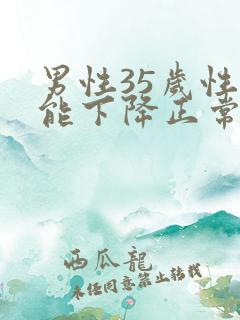 男性35歲性
能下降正常
西瓜龍
未任同意禁止转载